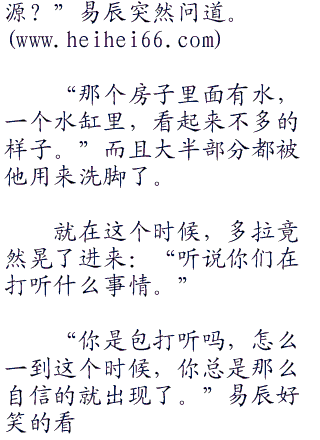 源？”易辰突然问道。
(www.heihei66.com)
“那个房子里面有水，
一个水缸里，看起来不多的
样子。”而且大半部分都被
他用来洗脚了。
就在这个时候，多拉竟
然晃了进来：“听说你们在
打听什么事情。”
“你是包打听吗，怎么
一到这个时候，你总是那么
自信的就出现了。”易辰好
笑的看